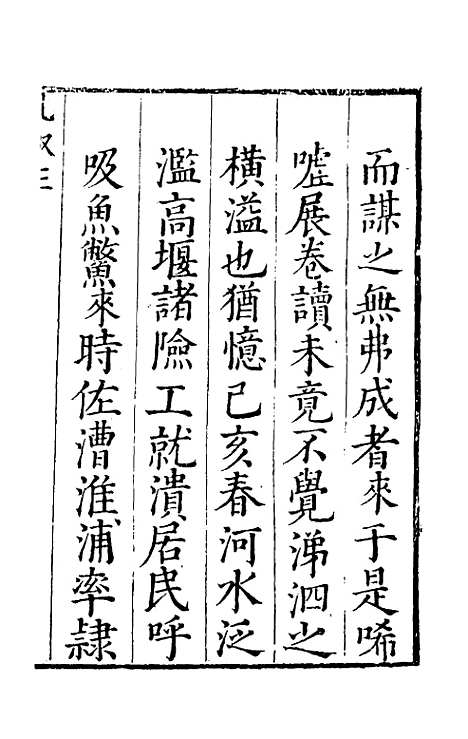 而謀之無弗成者來于是唏
噓展卷讀未竟不覺涕泗之
橫溢也猶憶己亥春河水泛
濫高堰諸險工就潰居民呼
吸魚鱉來時佐漕淮浦率隷